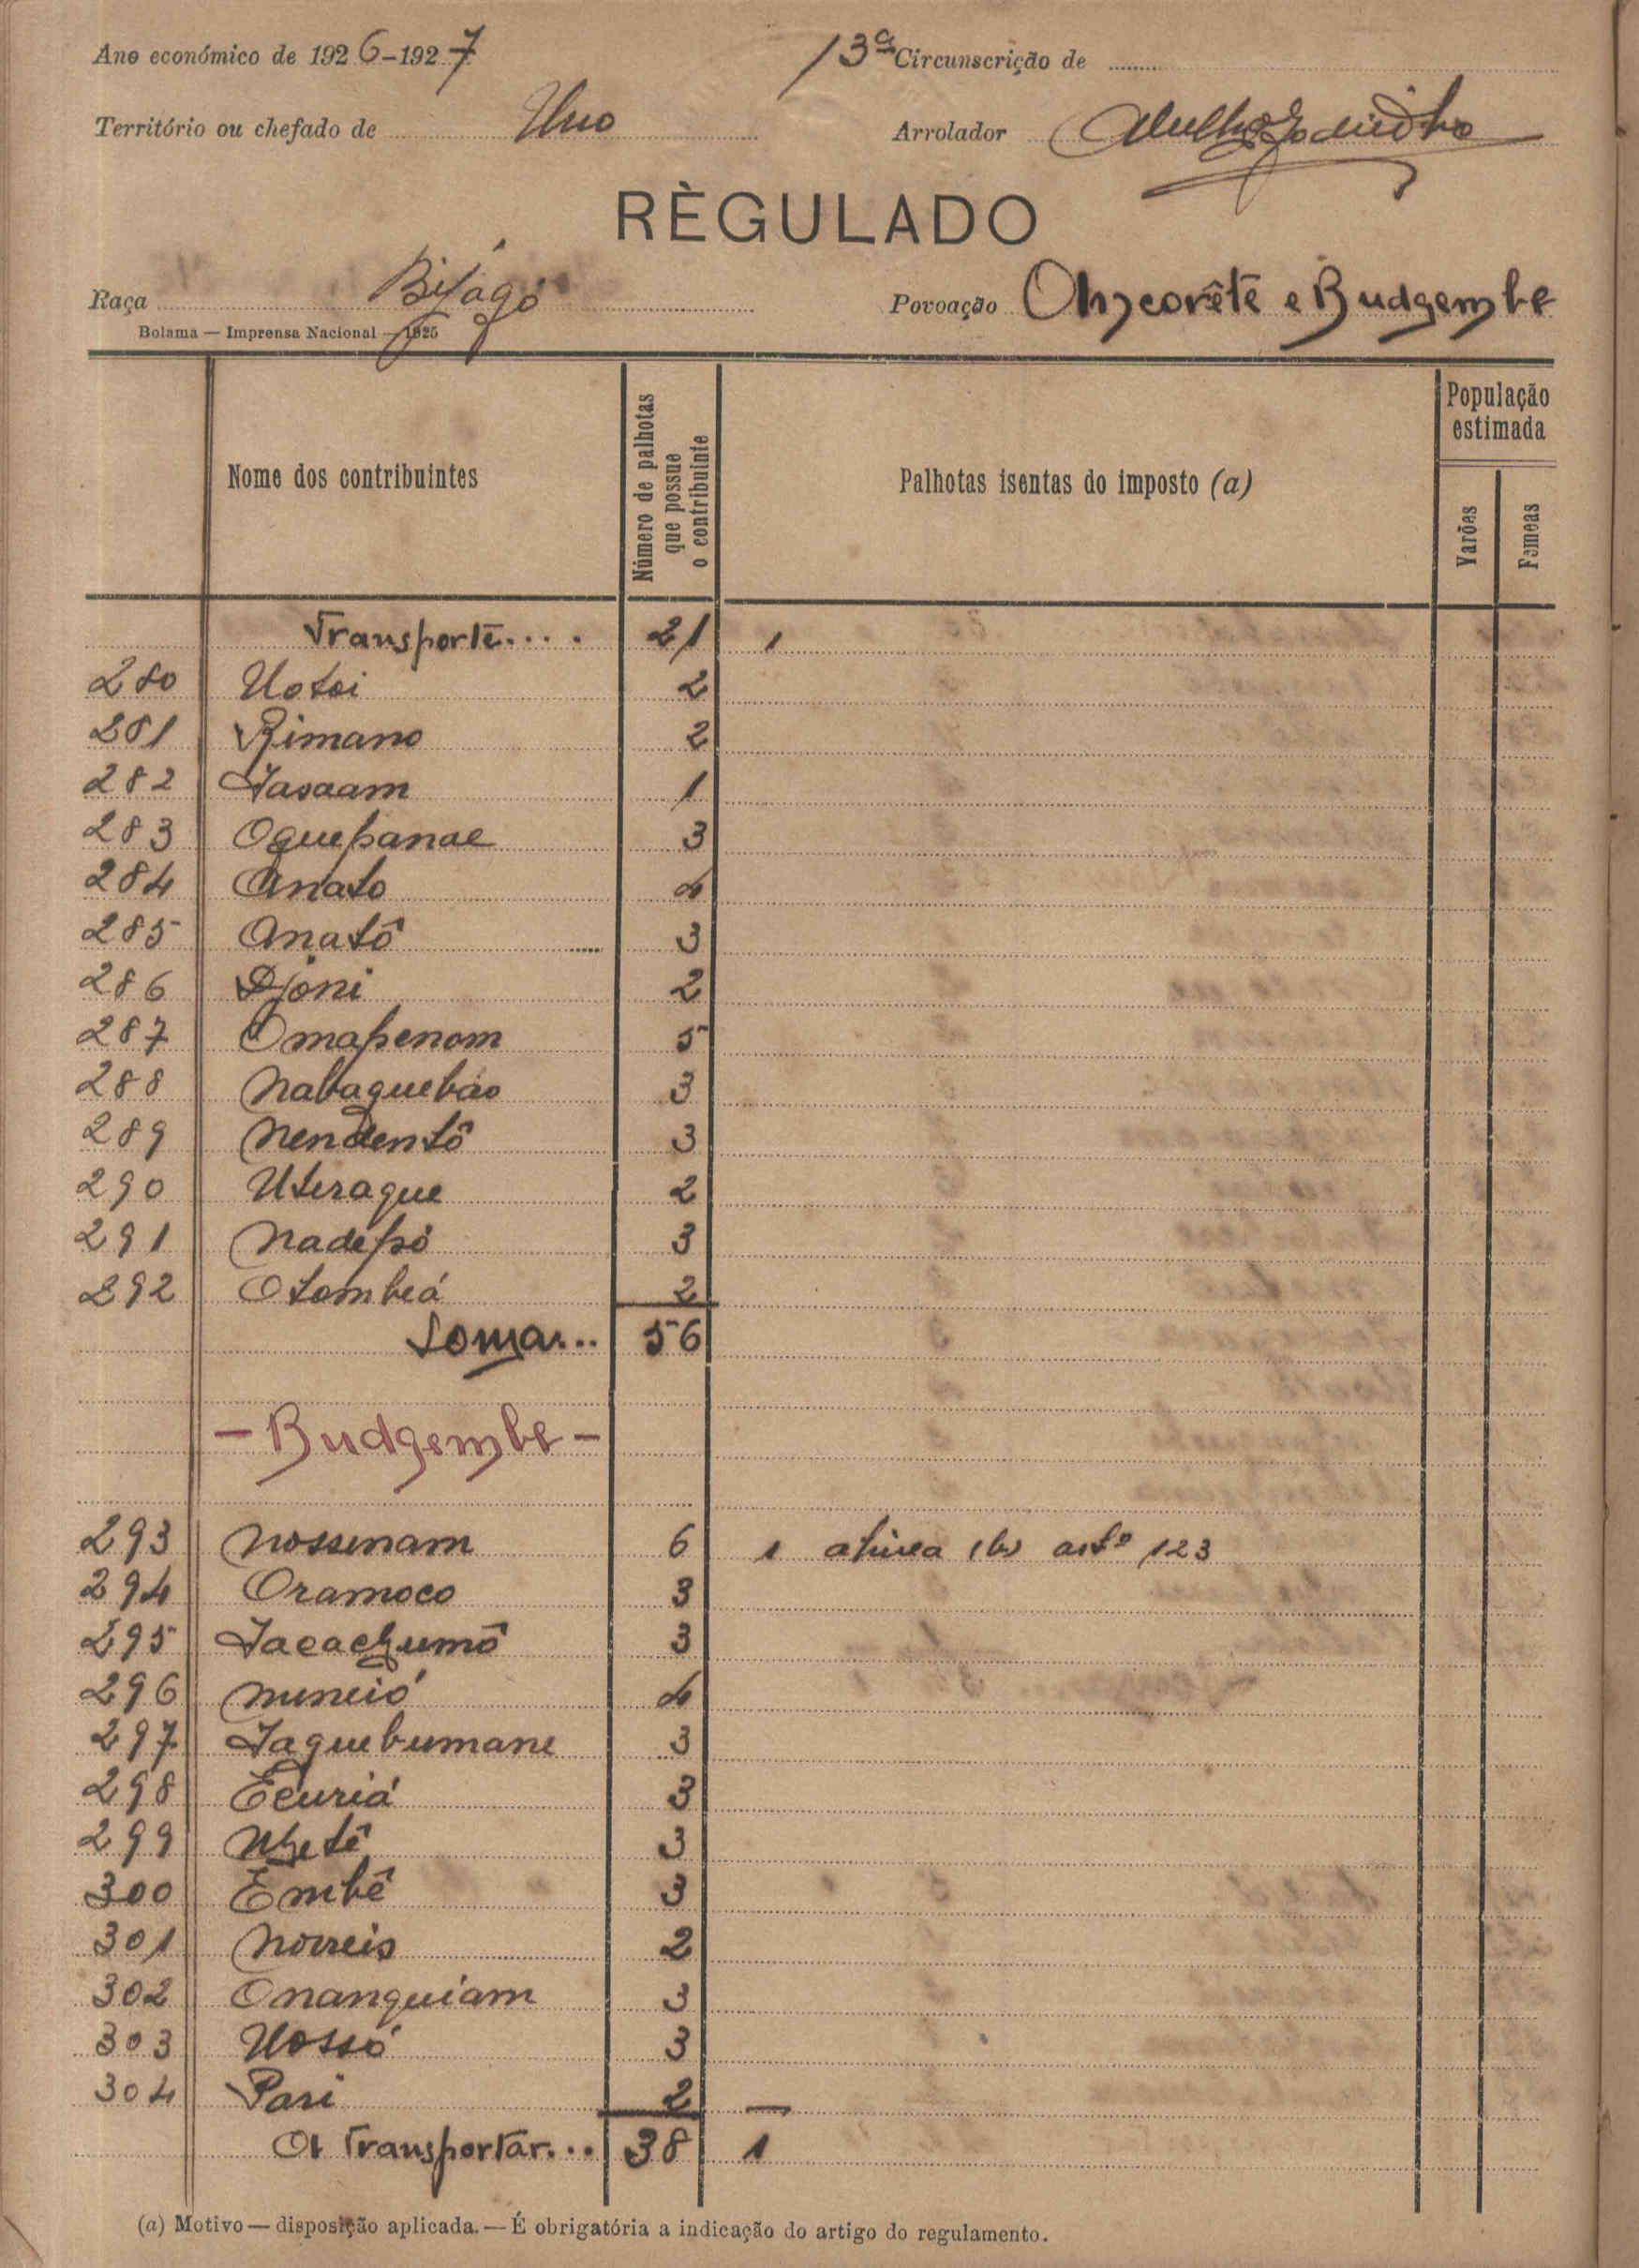 Ano económico de 1926-1927 13ª Circunscrição de
Território ou chefado de Uno Arrolador
RÈGULADO
Raça Bijagó Povoação e Budgembe
Bolama — Imprensa Nacional — 1925
Nome dos contribuintes
Número de palhotas que possue o contribuinte
Palhotas isentas do imposto (a)
População estimada
Varões
Femeas
Transporte.... 21 1
280 Uotoi 2
281 Rimano 2
282 Tasaam 1
283 Oquepanae 3
284 Anato 4
285 Anatô 3
286 Djoni 2
287 Omapenom 5
288 Nabaquebáo 3
289 Nendentô 3
290 Uteraque 2
291 Nadepsó 3
292 Otombeá 2
Soma... 56
- Budgembe -
293 Nossenam 6 1 alinea (b) artº 123
294 Oramoco 3
295 3
296 4
297 Taquebumane 3
298 Ecuriá 3
299 3
300 Embê 3
301 2
302 Onanquiam 3
303 Uossó 3
304 Pari 2 —
A Transportar... 38 1
(a) Motivo — disposição aplicada. — É obrigatória a indicação do artigo do regulamento.